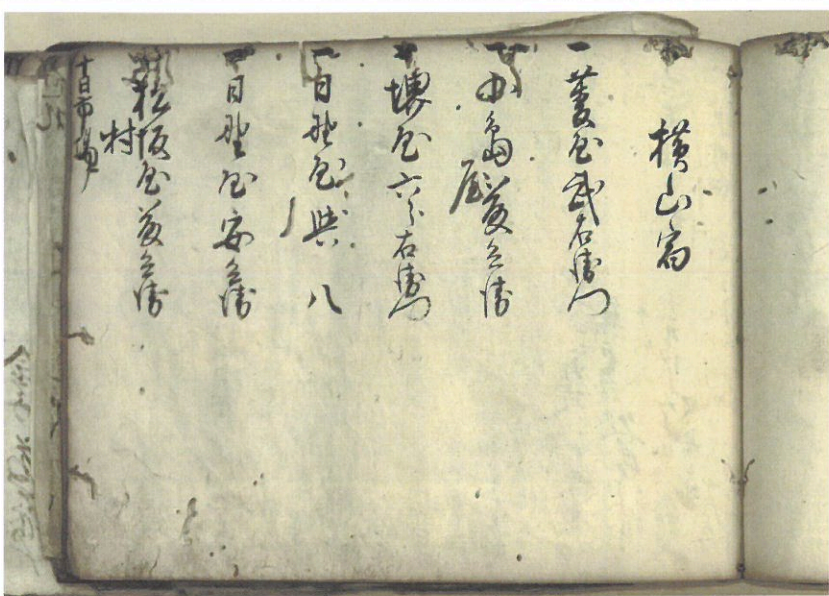 横山宿
一 菱屋武右衛門
一 小島屋菱兵衛
一 堺屋六郎右衛門
一 日野屋與八
一 日野屋安兵衛
松坂屋 兵衛
十日市場村